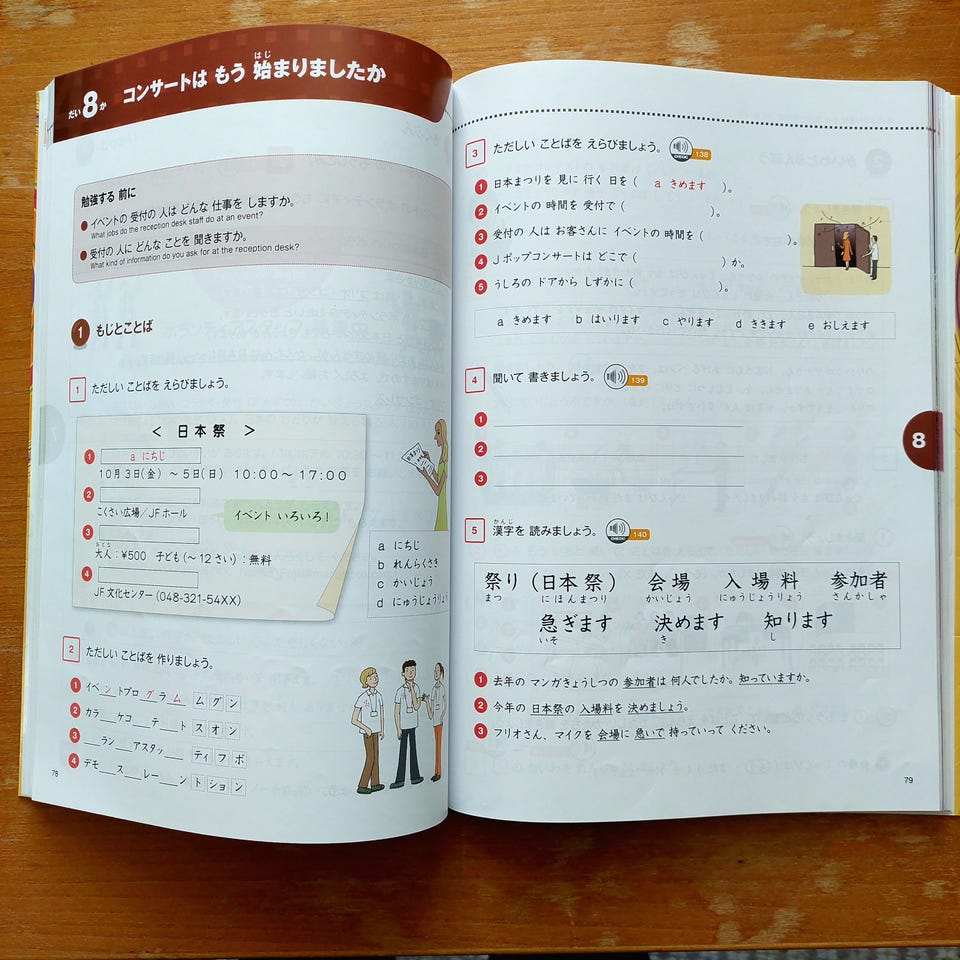 だい8か コンサートは もう 始まりましたか
はじ
勉強する 前に
● イベントの 受付の 人は どんな 仕事を しますか。
What jobs do the reception desk staff do at an event?
● 受付の 人に どんな ことを 聞きますか。
What kind of information do you ask for at the reception desk?
1 もじとことば
1 ただしい ことばを えらびましょう。
< 日本祭 >
1 a にちじ
10月3日(金) ~5日(日) 10:00~17:00
2
こくさい広場/JFホール
イベント いろいろ!
3
おとな
大人:¥500 子ども(~12さい):無料
4
JF文化センター(048-321-54XX)
a にちじ
b れんらくさき
c かいじょう
d にゅうじょうりょ
2 ただしい ことばを 作りましょう。
1 イベ_ン_トプロ_グ_ラ_ム_ ム グ ン
2 カラ__ケコ__テ__ト ス オ ン
3 __ラン__アスタッ__ ティ フ ボ
4 デモ__ス__レー__ン ト ショ ン
78
3 ただしい ことばを えらびましょう。 CHECK! 138
1 日本まつりを 見に 行く 日を( a きめます )。
2 イベントの 時間を 受付で( )。
3 受付の 人は お客さんに イベントの 時間を( )。
4 Jポップコンサートは どこで( )か。
5 うしろの ドアから しずかに( )。
a きめます b はいります c やります d ききます e おしえます
4 聞いて 書きましょう。 139
1
2
3
かんじ
5 漢字を 読みましょう。 CHECK! 140
祭り(日本祭) 会場 入場料 参加者
まつ にほんまつり かいじょう にゅうじょうりょう さんかしゃ
急ぎます 決めます 知ります
いそ き し
1 去年の マンガきょうしつの 参加者は 何人でしたか。知っていますか。
2 今年の 日本祭の 入場料を 決めましょう。
3 フリオさん、マイクを 会場に 急いで 持っていって ください。
8
79